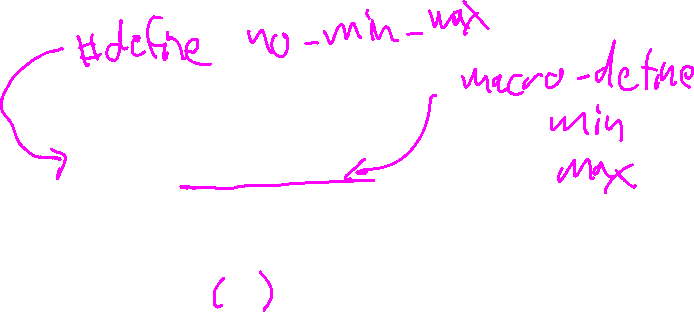 #define no-min-max
macro-define
min
max
( )